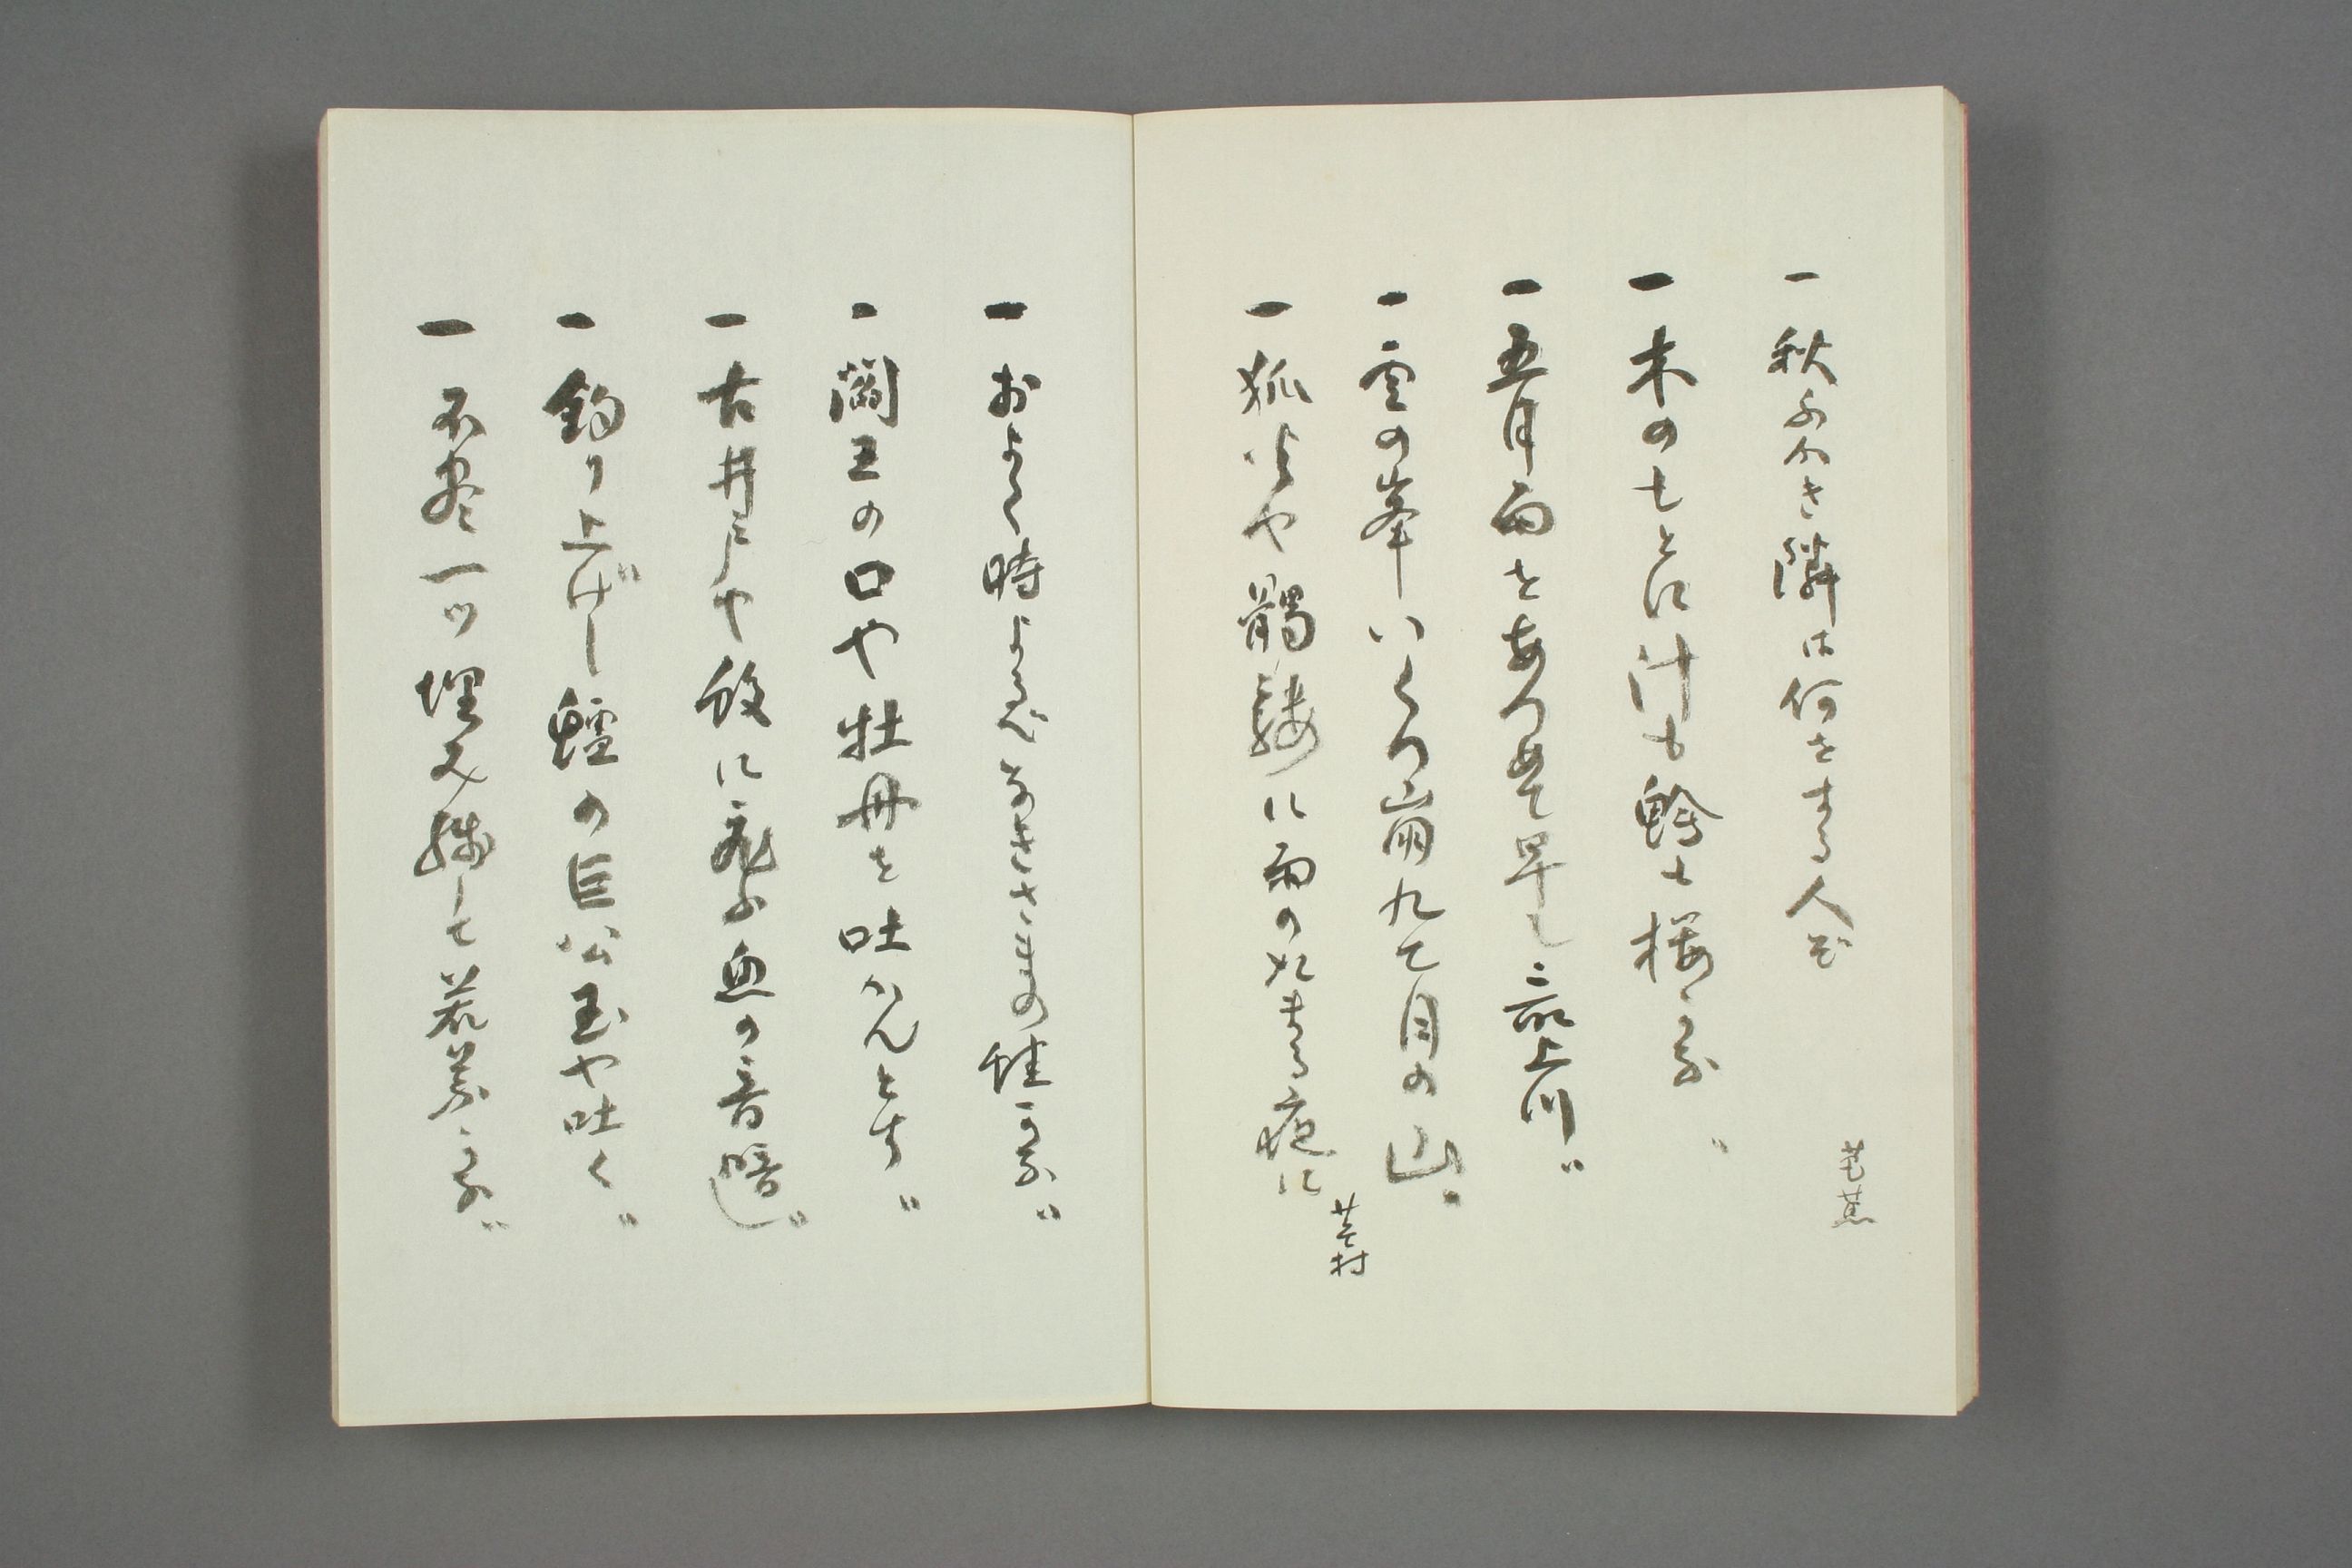 一 秋ふかき隣は何をする人ぞ 芭蕉
一 木のもとに汁も鱠も桜かな 〃
一 五月雨をあつめて早し最上川 〃
一 雲の峯いくつ崩れて月の山 〃
一 狐火や髑髏に雨のたまる夜に 蕪村
一 およく時よるべなきさまの蛙かな 〃
一 閻王の口や牡丹を吐かんとす 〃
一 古井戸や蚊に飛ふ魚の音暗し 〃
一 釣り上げし鱸の巨口玉や吐く 〃
一 不尽一ツ埋み残して若葉かな 〃